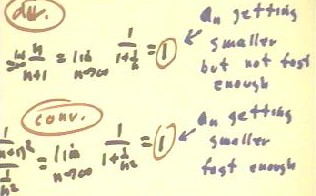 div.
n/(n+1) = lim n→∞ 1/(1+1/n) = 1
an getting
smaller
but not fast
enough
conv.
= lim n→∞ 1/(1+1/n²) = 1
an getting
smaller
fast enough